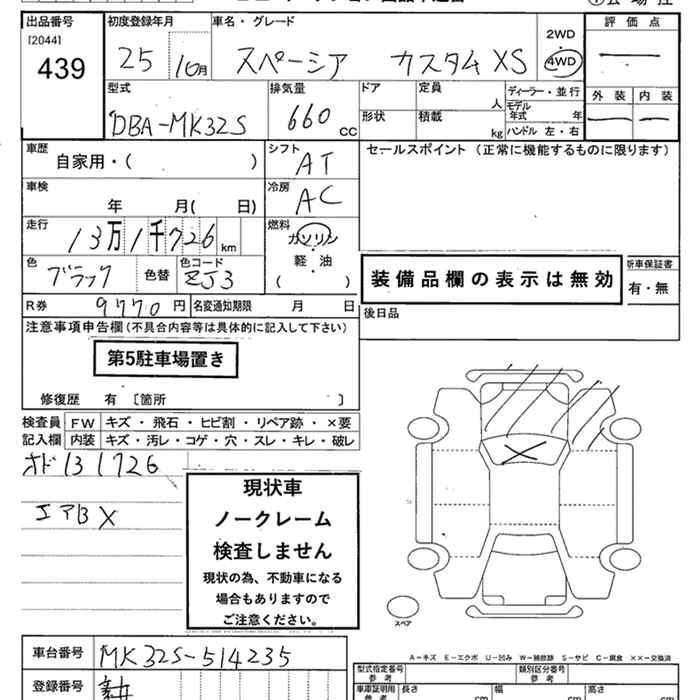 出品番号 初度登録年月 車名・グレード 評価点
[2044] 439 25 10月 スペーシア カスタム XS 2WD・4WD
外装 内装
型式 排気量 ドア 定員 人 ディーラー・並行
DBA-MK32S 660 CC 形状 積載 kg モデル年式 年
ハンドル 左・右
車歴 自家用・( ) シフト AT セールスポイント (正常に機能するものに限ります)
車検 年 月( 日) 冷房 AC
走行 13万1千726 km 燃料 ガソリン
軽・油
( )
色 ブラック 色替 色コード ZJ3
装備品欄の表示は無効 新車保証書
有・無
R券 9770円 名変通知期限 月 日 後日品
注意事項申告欄 (不具合内容等は具体的に記入して下さい)
第5駐車場置き
修復歴 有 〔箇所 〕
検査員 FW キズ・飛石・ヒビ割・リペア跡・×要
記入欄 内装 キズ・汚レ・コゲ・穴・スレ・キレ・破レ
オド131726
エアB X
現状車
ノークレーム
検査しません
現状の為、不動車になる
場合もありますので
ご注意ください。
スペア
A−キズ E−エクボ U−凹み W−補修跡 S−サビ C−腐食 ××−交換済
車台番号 MK32S-514235
型式指定番号 参考 類別区分番号 参考
登録番号
車庫証明用 参考 長さ cm 幅 cm 高さ cm